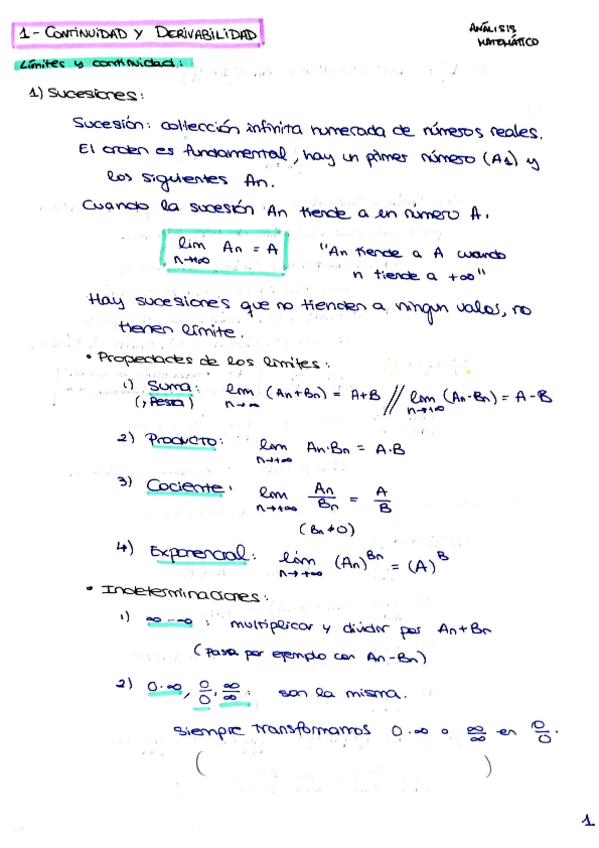 1 - CONTINUIDAD Y DERIVABILIDAD
ANÁLISIS
MATEMÁTICO
Límites y continuidad:
1) Sucesiones:
Sucesión: collección infinita numerada de números reales.
El orden es fundamental, hay un primer número (A1) y
los siguientes An.
Cuando la sucesión An tiende a en número A.
lim An = A
n→+∞
"An tiende a A cuando
n tiende a +∞"
Hay sucesiones que no tienden a ningun valor, no
tienen límite.
• Propiedades de los límites:
1) Suma: lim (An+Bn) = A+B // lim (An-Bn) = A-B
(, Resta) n→∞ n→+∞
2) Producto: lim An·Bn = A·B
n→+∞
3) Cociente: lim An/Bn = A/B
n→+∞
(Bn≠0)
4) Exponencial: lim (An)^Bn = (A)^B
n→+∞
• Indeterminaciones:
1) ∞-∞ : multiplicar y dividir por An+Bn
(Pasa por ejemplo con An-Bn)
2) 0·∞, 0/0, ∞/∞: son la misma.
Siempre transformamos 0·∞ o ∞/∞ en 0/0.
( )
1